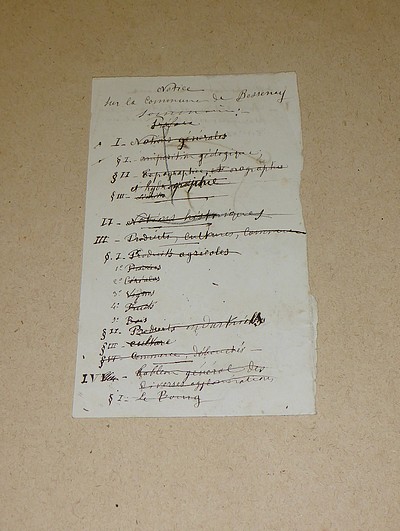 Notice
sur la Commune de Bessenay
Sommaire :
Préface
I - Notions générales
§ I - composition géologique
§ II - topographie, et orographie
et hydrographie
§ III -
II - Notices historiques
III - Produits, cultures, commerce
§. I - Produits agricoles
1°
2° Céréales
3° Vignes
4° Fruits
5° Bois
§ II - Produits industriels
§ III - culture
§ IV - Commerce, débouchés
IV - tableau général des
diverses agglomérations
§ I - Le Bourg